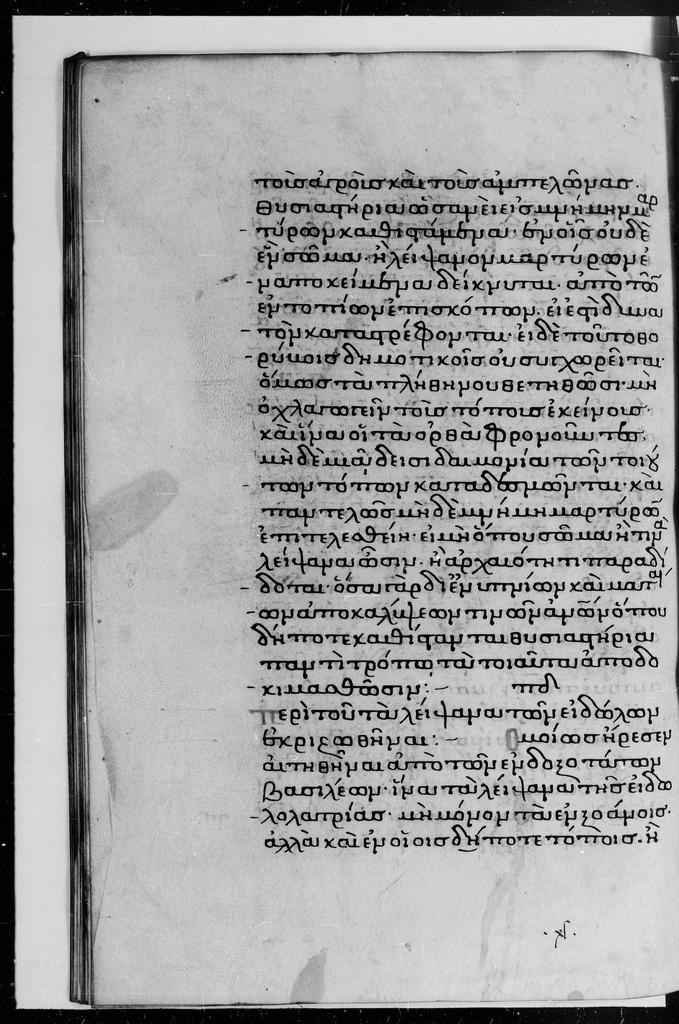 τοῖς ἀγροῖς καὶ τοῖς ἀμπελῶνας.
θυσιαστήρια ὡσανεὶ εἰς μνήμην μαρ
τύρων καθιστάμενα. ἐν οἷς οὐδὲ
ἓν σῶμα. ἢ λείψανον μαρτύρων ἐ
ναποκείμενα δείκνυται. ἀπὸ τῶν
ἐντοπίων ἐπισκόπων. εἰ ἐστὶ δυνα
τὸν καταστρέφονται. εἰ δὲ τοῦτο θο
ρύβοις δημοτικοῖς οὐ συγχωρεῖται.
ὅμως τὰ πλήθη νουθετηθῶσι. μὴ
ὀχλαγωγεῖν τοῖς τόποις ἐκείνοις.
καὶ ἵνα οἱ τὰ ὀρθὰ φρονοῦντες.
μηδεμιᾷ δεισιδαιμονίᾳ τῶν τοιού
των τόπων καταδεσμῶνται. καὶ
παντελῶς μηδὲ μνήμη μαρτύρων
ἐπιτελεσθείη. εἰ μὴ ὅπου σῶμα ἤ τινα
λείψανα ὦσιν. ἢ ἀρχαιότητι παραδί
δοται. ὅσα γὰρ δι' ἐνυπνίων καὶ ματαί
ων ἀποκαλύψεων τινῶν ἀνθρώπων ὅπου
δήποτε καθίστανται θυσιαστήρια
παντὶ τρόπῳ τὰ τοιαῦτα ἀποδο
κιμασθῶσιν:- πδ
Περὶ τοῦ τὰ λείψανα τῶν εἰδώλων
ἐκριζωθῆναι:- Ὁμοίως ἤρεσεν
αἰτηθῆναι ἀπὸ τῶν ἐνδοξοτάτων
βασιλέων. ἵνα τὰ λείψανα τῆς εἰδω
λολατρίας. μὴ μόνον τὰ ἐν ξοάνοις.
ἀλλὰ καὶ ἐν οἵοις δήποτε τόποις. ἢ